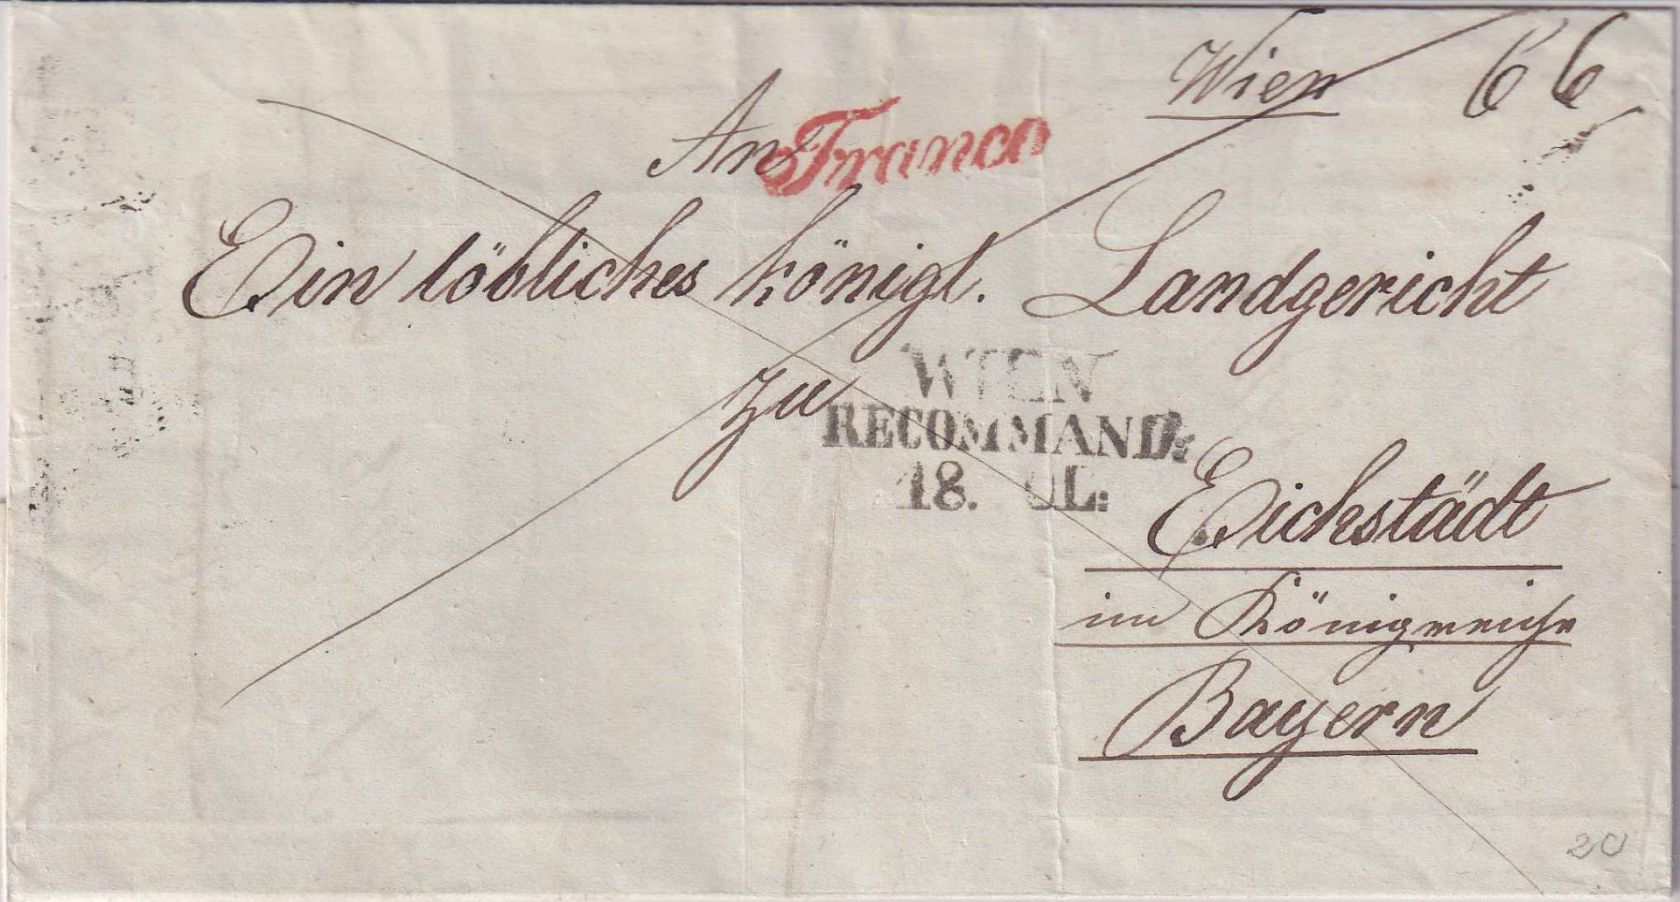 Wien 66
An
Franco
Ein löbliches königl. Landgericht
zu
WIEN
RECOMMAND:
18. UL:
Eichstädt
im Königreiche
Bayern
20